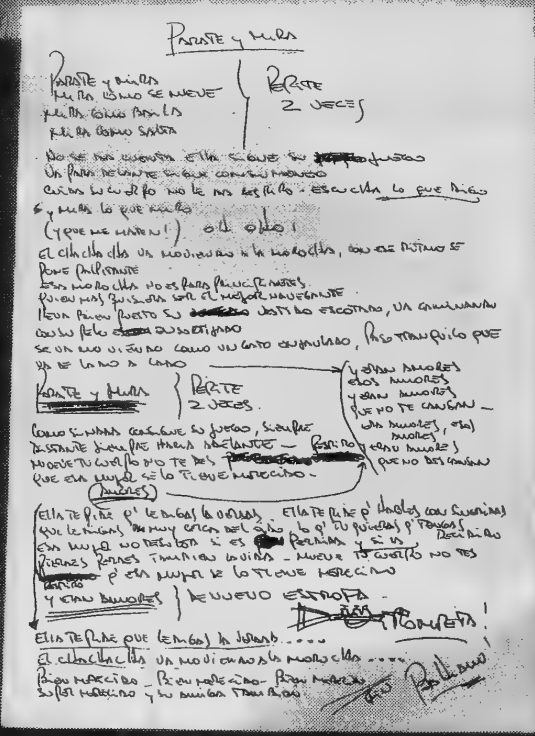 PARATE y MIRA
PARATE y MIRA
MIRA COMO SE MUEVE
MIRA COMO BAILA
MIRA COMO SALTA
REPITE
2 VECES
NO SE DAS CUENTA ELLA SIGUE SU JUEGO
VA PARA DELANTE SIGUE CON SU MANEO
CUIDA SU CUERPO NO LE DAS RESPIRO - ESCUCHA LO QUE DIGO
y MIRA LO QUE MIRO
(y QUE ME MATEN!) OH OHO!
EL CHACHACHA VA MOVIENDO A LA MOROCHA, CON ESE RITMO SE
PONE PALPITANTE
ESA MOROCHA NO ES PARA PRINCIPIANTES
QUIEN MAS QUISIERA SER EL MEJOR NAVEGANTE
LLEVA BIEN PUESTO SU VESTIDO ESCOTADO, VA CAMINANDO
CON SU PELO ENSORTIJADO
SE VA MOVIENDO COMO UN GATO ENJAULADO, PASO TRANQUILO QUE
VA DE LADO A LADO
PARATE y MIRA
REPITE
2 VECES.
y ERAN AMORES
ESOS AMORES
y ERAN AMORES
QUE NO TE CANSAN -
ERAN AMORES, ESOS
AMORES
y ERAN AMORES
QUE NO DESCANSAN
COMO SI NADA CONSIGUE SU JUEGO, SIEMPRE
DISTANTE SIEMPRE HACIA ADELANTE - RESPIRO
MUEVE TU CUERPO NO TE DES
QUE ESA MUJER SE LO TIENE MERECIDO -
(AMORES)
ELLA TE PIDE q' LE DIGAS LA VERDAD ELLA TE PIDE q' HABLES CON SINCERIDAD
QUE LE DIGAS MUY CERCA DEL OIDO LO q' TU QUIERAS q' TENGAS DECIDIDO
ESA MUJER NO RESULTA SI ES PERDIDA y SI VA
PIERDES PIERDES TAMBIEN LA VIDA - MUEVE TU CUERPO NO TES
RESPIRO q' ESA MUJER SE LO TIENE MERECIDO
y ERAN AMORES
DE NUEVO ESTROFA.
TROMPETA!
ELLA TE PIDE QUE LE DIGAS LA VERDAD ....
EL CHACHACHA VA MOVIENDO A LA MOROCHA ....
BIEN MERECIDO - BIEN MERECIDO - BIEN MERECIDO
SUPER MERECIDO y SU AMIGA TAMBIEN